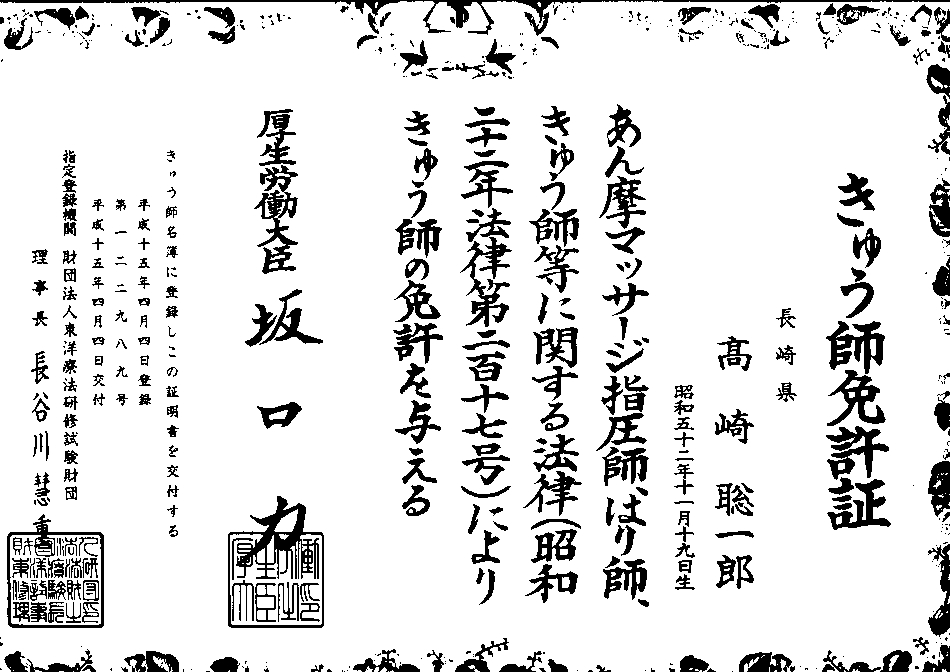 きゅう師免許証
長崎県
髙崎聡一郎
昭和五十二年十一月十九日生
あん摩マッサージ指圧師、はり師、
きゅう師等に関する法律(昭和
二十二年法律第二百十七号)により
きゅう師の免許を与える
厚生労働大臣 坂口力
きゅう師名簿に登録しこの証明書を交付する
平成十五年四月四日登録
第一二二九八九号
平成十五年四月四日交付
指定登録機関 財団法人東洋療法研修試験財団
理事長 長谷川慧重